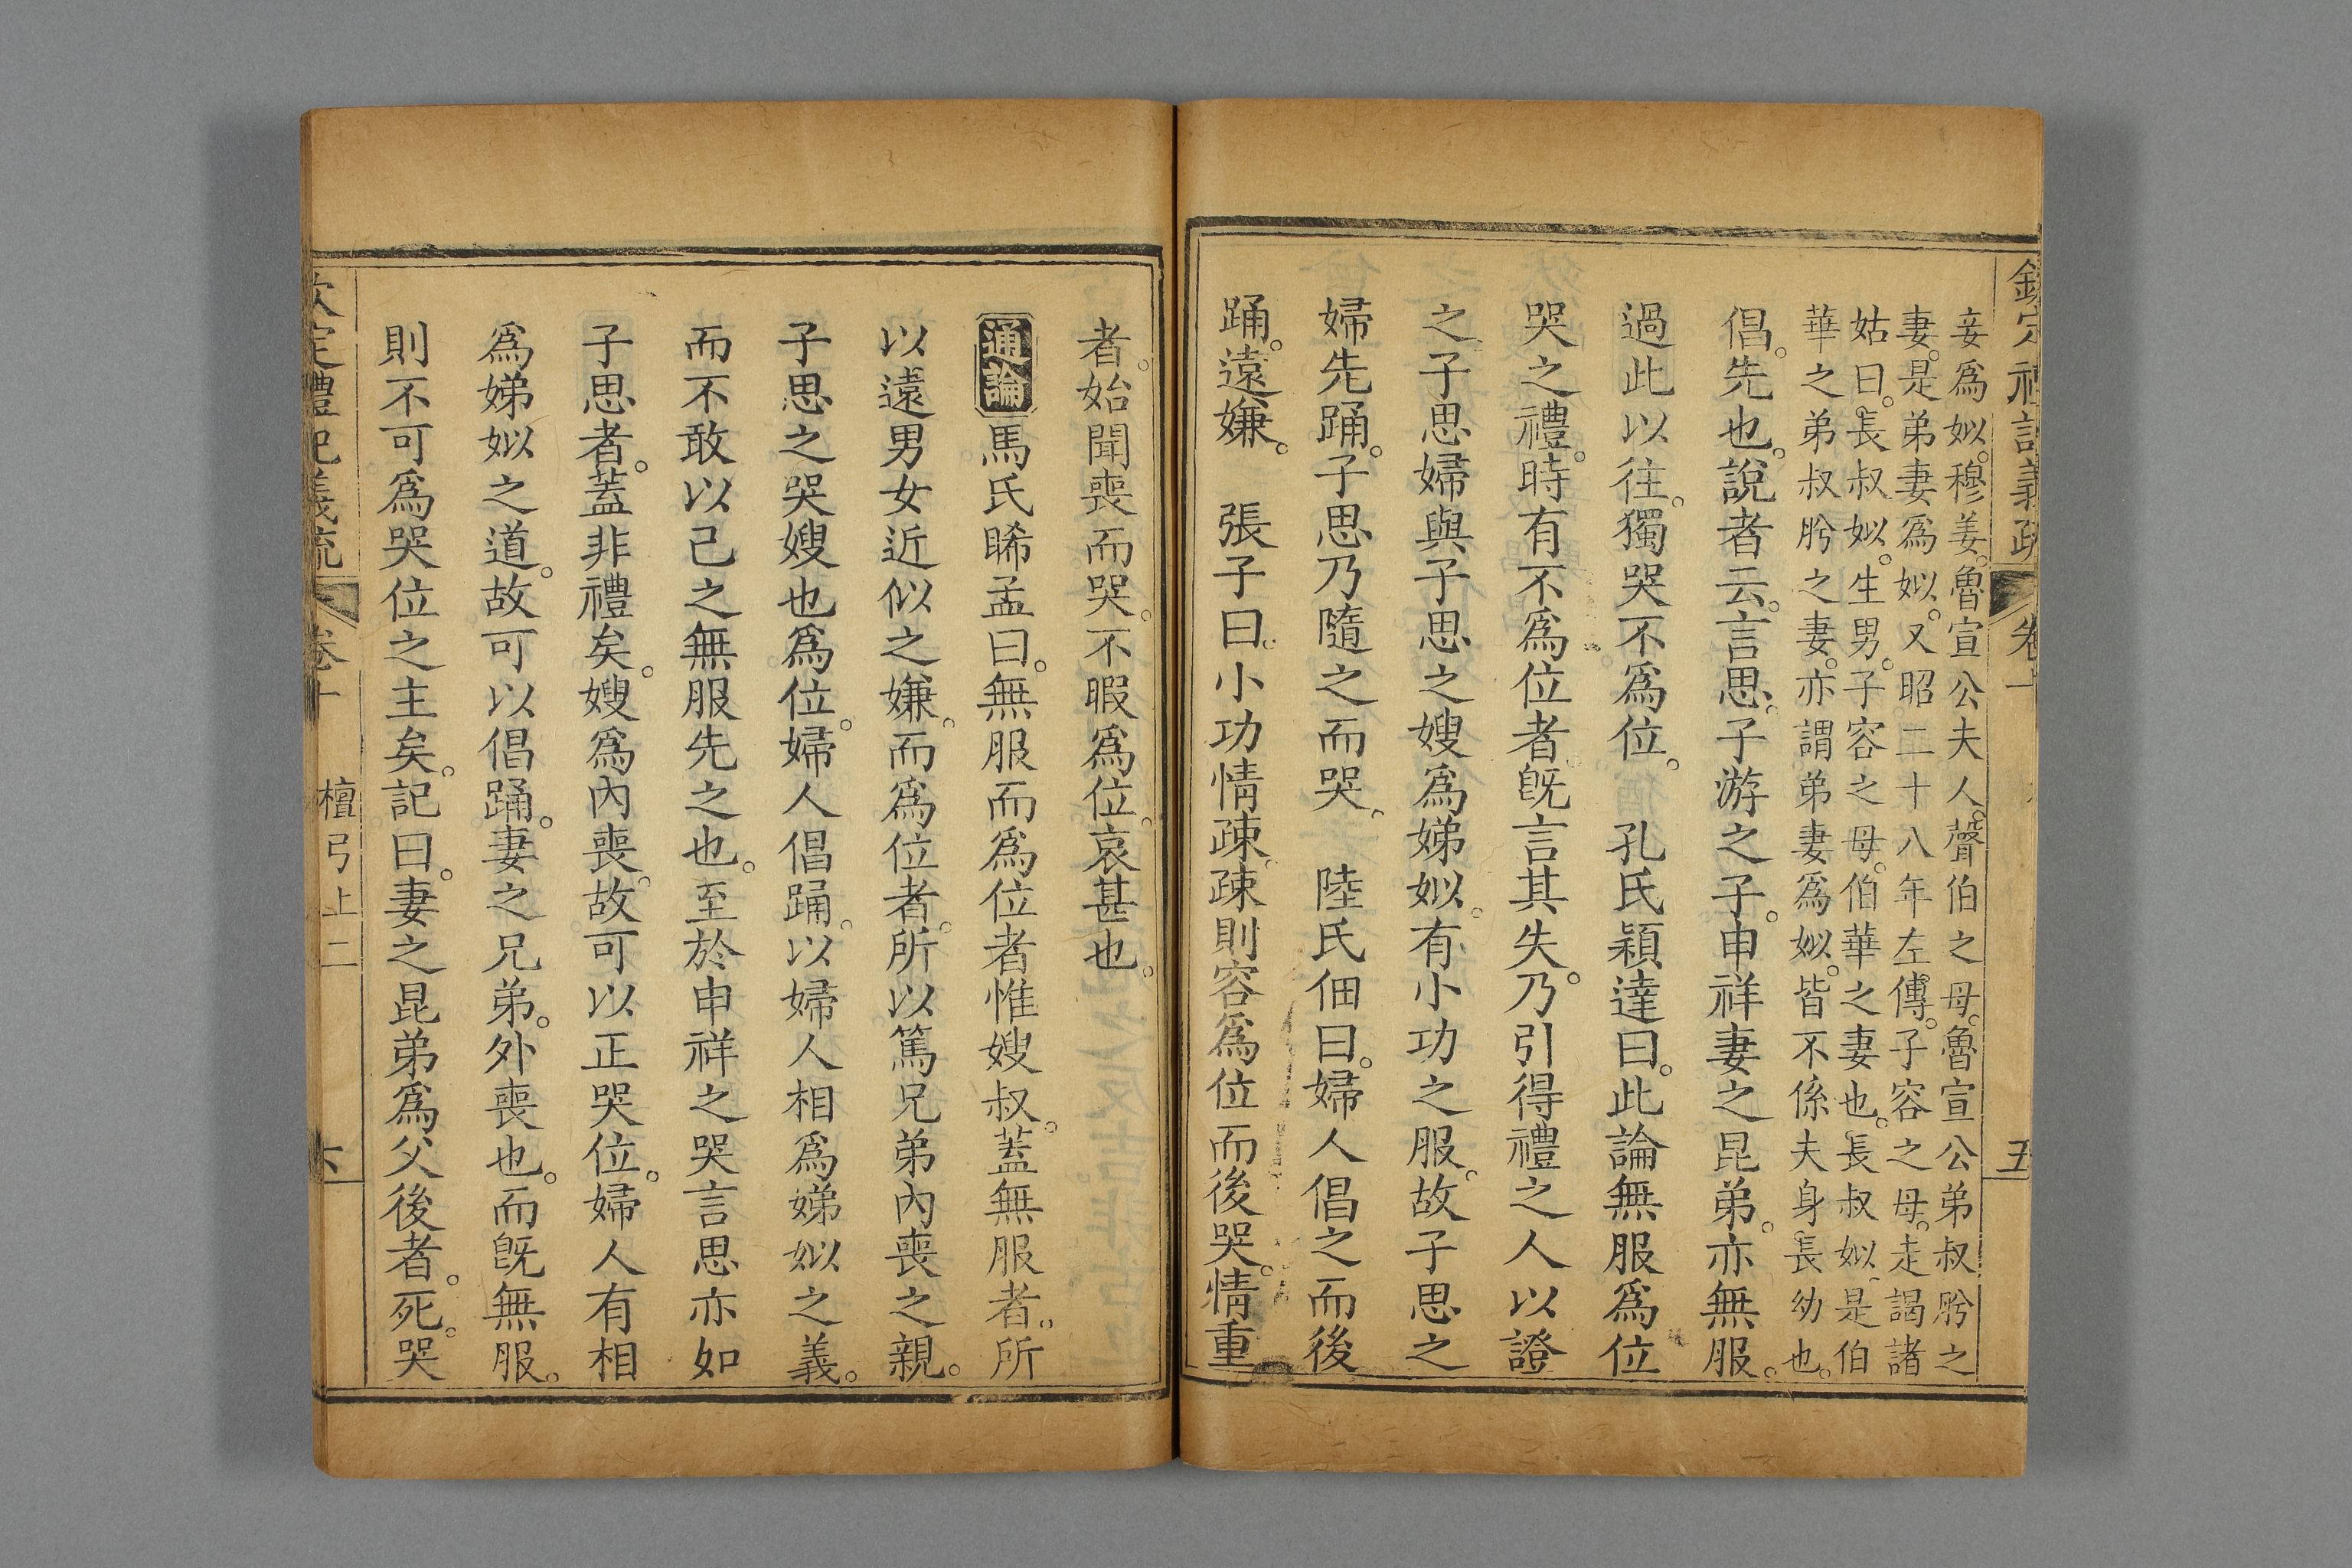 欽定禮記義疏 卷十 五
妾爲姒。穆姜。魯宣公夫人。聲伯之母。魯宣公弟叔肸之
妻。是弟妻爲姒。又昭二十八年左傳。子容之母。走謁諸
姑曰。長叔姒。生男。子容之母。伯華之妻也。長叔姒。是伯
華之弟叔肸之妻。亦謂弟妻爲姒。皆不係夫身。長幼也。
倡。先也。說者云。言思。子游之子。申祥妻之昆弟。亦無服。
過此以往。獨哭不爲位。 孔氏穎達曰。此論無服爲位
哭之禮。時有不爲位者。旣言其失。乃引得禮之人以證
之。子思婦與子思之嫂爲娣姒。有小功之服。故子思之
婦先踊。子思乃隨之而哭。 陸氏佃曰。婦人倡之而後
踊。遠嫌。 張子曰。小功情疎。疎則容爲位而後哭。情重
者。始聞喪而哭。不暇爲位。哀甚也。
通論 馬氏晞孟曰。無服而爲位者惟嫂叔。蓋無服者。所
以遠男女近似之嫌。而爲位者。所以篤兄弟內喪之親。
子思之哭嫂也爲位。婦人倡踊。以婦人相爲娣姒之義。
而不敢以己之無服先之也。至於申祥之哭言思亦如
子思者。蓋非禮矣。嫂爲內喪。故可以正哭位。婦人有相
爲娣姒之道。故可以倡踊。妻之兄弟。外喪也。而旣無服。
則不可爲哭位之主矣。記曰。妻之昆弟爲父後者。死。哭
欽定禮記義疏 卷十 檀弓上二 六